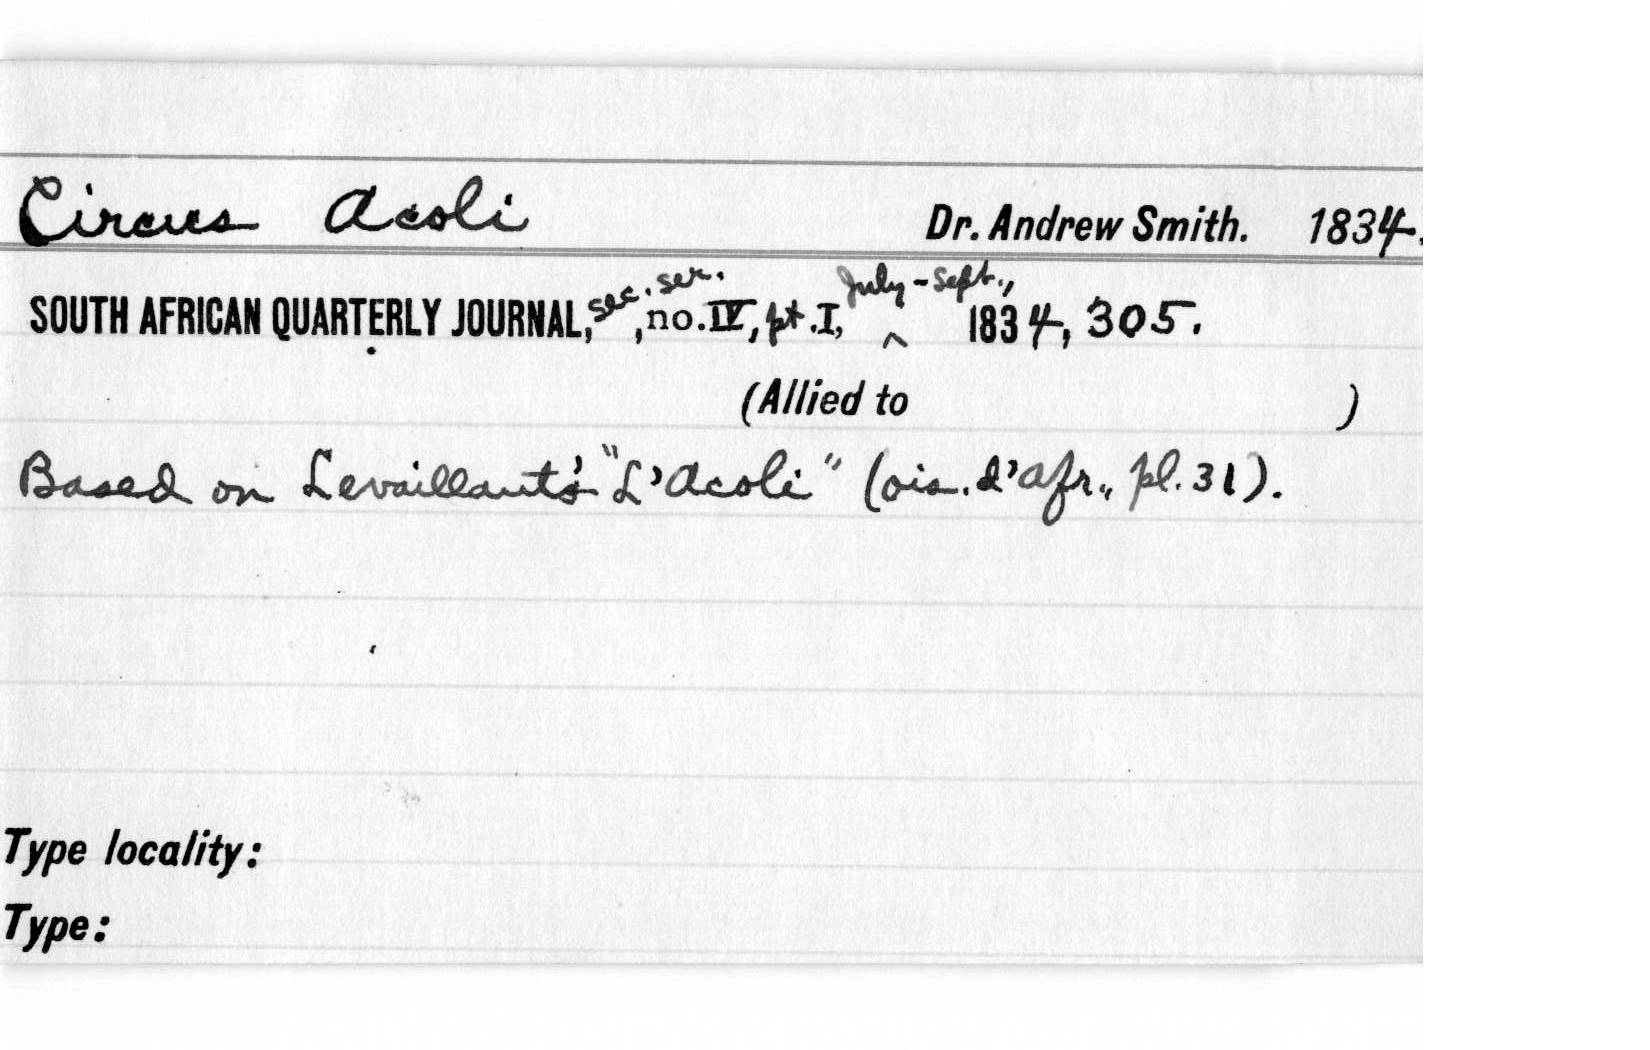 Circus Acoli Dr. Andrew Smith. 1834.
SOUTH AFRICAN QUARTERLY JOURNAL, sec. ser., no. IV, pt. I, July-Sept., ^ 1834, 305.
(Allied to )
Based on Levaillant's "L'Acoli" (ois. d'afr., pl. 31).
Type locality:
Type: